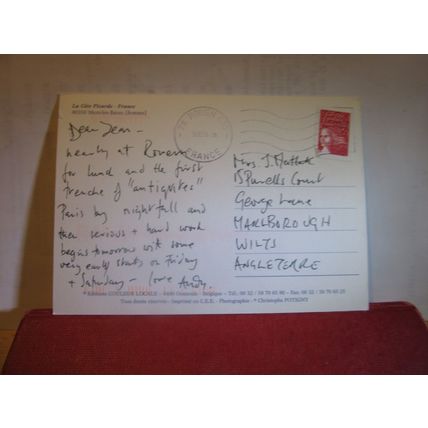 La Côte Picarde - France
Dear Jean -
nearly at Rouen
for lunch and the first
tranche of "antiquites"
Paris by nightfall and
then serious + hard work
begins tomorrow with some
very early starts on Friday
+ Saturday - love Andy.
FRANCE
Mrs. J.
Court
George Lane
MARLBOROUGH
WILTS
ANGLETERRE
Editions COULEUR LOCALE
Tous droits réservés - Imprimé en C.E.E. - Photographie : Christophe POTIGNY